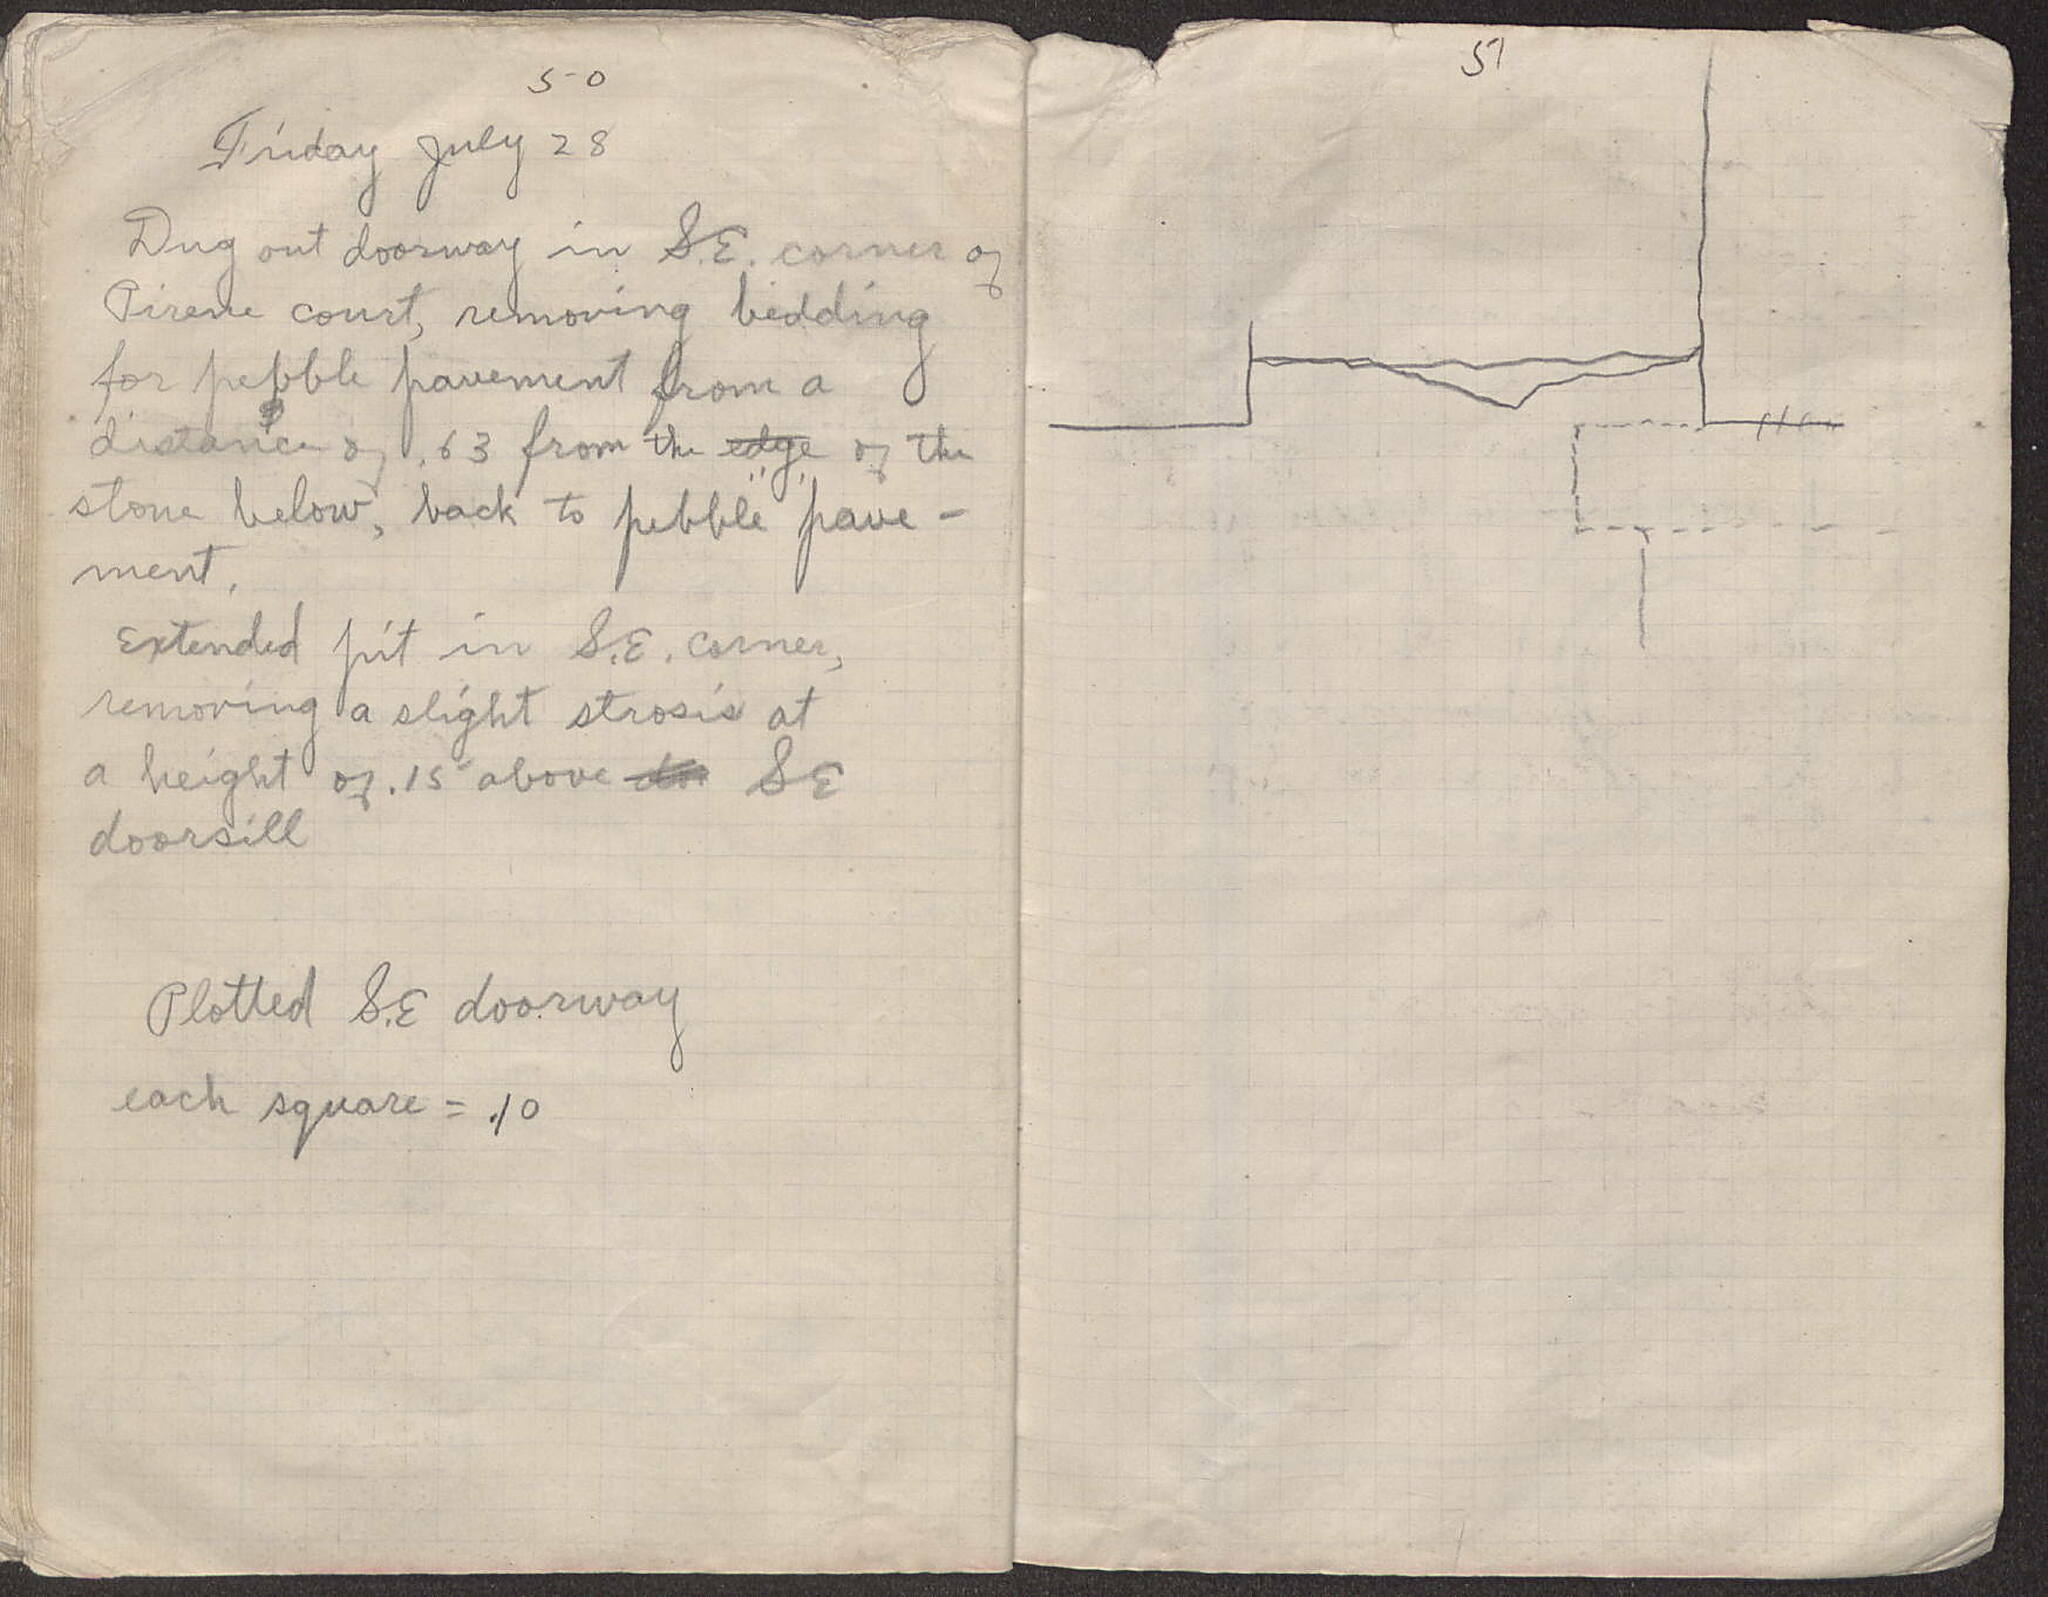 50
Friday July 28
Dug out doorway in S.E. corner of
Pirene court, removing bedding
for pebble pavement from a
distance of .63 from the edge of the
stone below, back to pebble pave-
ment.
Extended pit in S.E. corner,
removing a slight strosis at
a height of .15 above SE
doorsill
Plotted S.E doorway
each square = .10
51